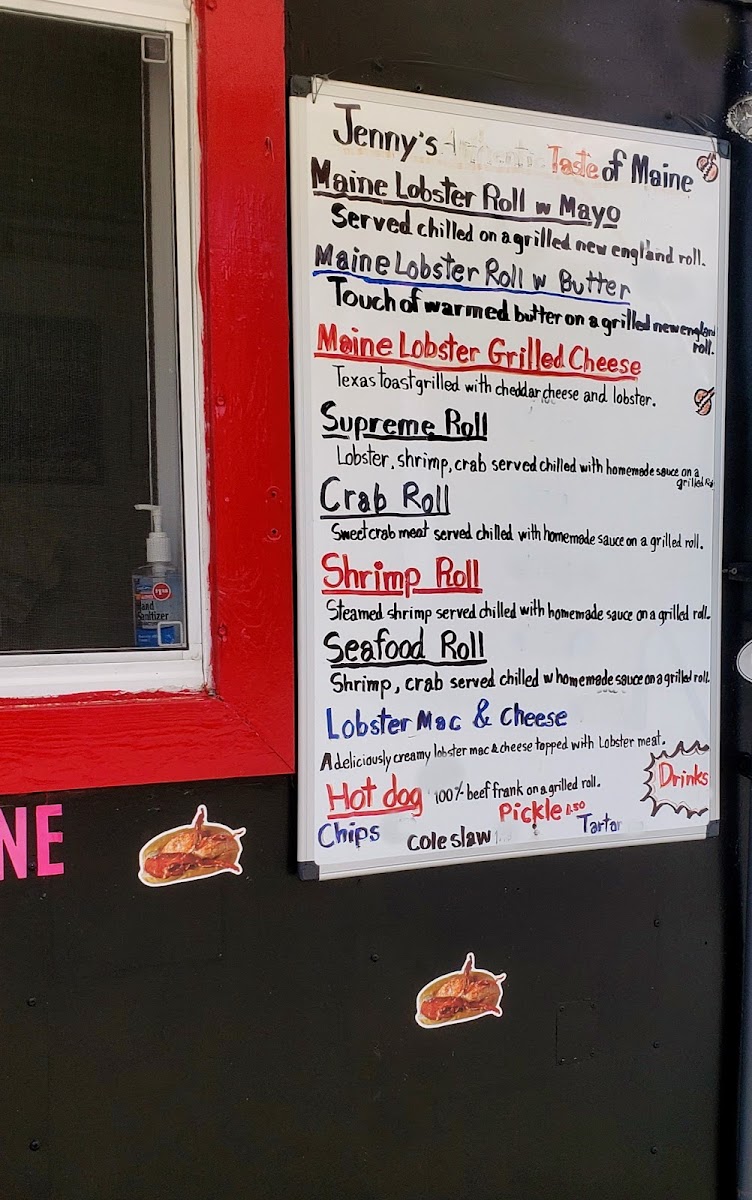 Jenny's Authentic Taste of Maine
Maine Lobster Roll w Mayo
Served chilled on a grilled new england roll.
Maine Lobster Roll w Butter
Touch of warmed butter on a grilled new england
roll.
Maine Lobster Grilled Cheese
Texas toast grilled with cheddar cheese and lobster.
Supreme Roll
Lobster, shrimp, crab served chilled with homemade sauce on a
grilled
Crab Roll
Sweet crab meat served chilled with homemade sauce on a grilled roll.
Shrimp Roll
Steamed shrimp served chilled with homemade sauce on a grilled roll.
Seafood Roll
Shrimp, crab served chilled w homemade sauce on a grilled roll.
Lobster Mac & Cheese
A deliciously creamy lobster mac & cheese topped with Lobster meat.
Hot dog 100% beef frank on a grilled roll.
Drinks
Chips
cole slaw
Pickle 1.50
Tartar
Hand
Sanitizer
NE